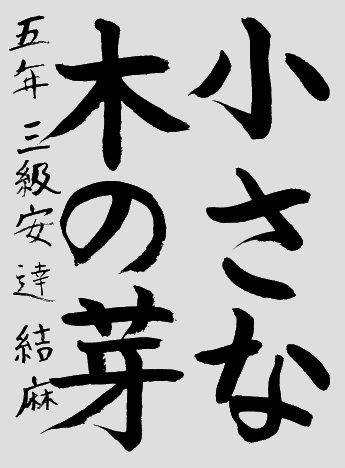 小さな
木の芽
五年 三級 安達 結麻